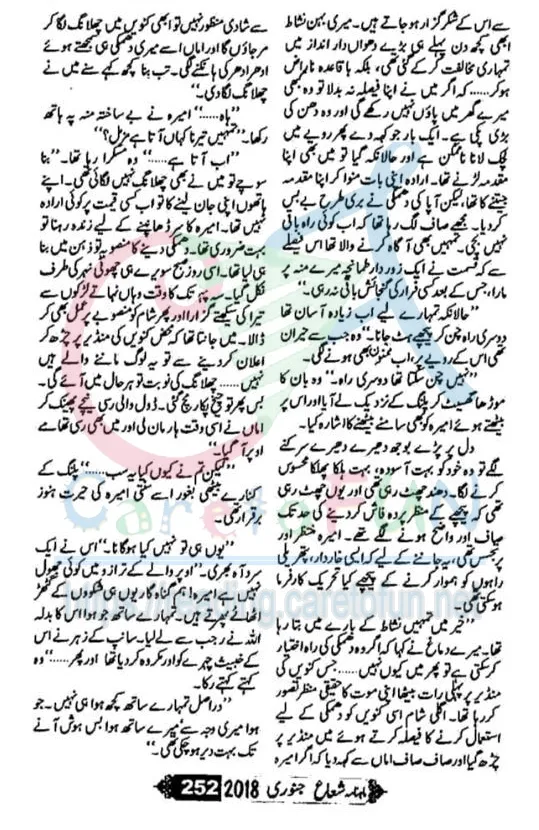 سے اس کے شکر گزار ہو جاتے ہیں۔ میری بہن نشاط
ابھی کچھ دن پہلے ہی بڑے دھواں دار انداز میں
تمہاری مخالفت کر کے گئی تھی، بلکہ باقاعدہ ناراض
ہو کر...... کہ اگر میں نے اپنا فیصلہ نہ بدلا تو وہ بھی
میرے گھر میں پاؤں نہیں رکھے گی اور وہ دھن کی
بڑی پکی ہے۔ ایک بار جو کہہ دے پھر رویے میں
لچک لانا ناممکن ہے اور حالانکہ گیا تو میں بھی اپنا
مقدمہ لڑنے تھا۔ ارادہ اپنی بات منوا کر اپنا مقدمہ
جیتنے کا تھا، لیکن آپا کی دھمکی نے بری طرح بے بس
کر دیا۔ مجھے صاف لگ رہا تھا کہ اب کوئی راہ باقی
نہیں بچی۔ تمہیں بھی آگاہ کرنے والا تھا اس فیصلے
سے کہ قسمت نے ایک زور دار طمانچہ میرے منہ پر
مارا، جس کے بعد کسی فرار کی گنجائش باقی نہ رہی۔"
"حالانکہ تمہارے لیے اب زیادہ آسان تھا
دوسری راہ چن کر پیچھے ہٹ جانا۔" وہ جب سے حیران
تھی اس کے رویے پر، اب ممنون بھی ہونے لگی۔
"نہیں چن سکتا تھا دوسری راہ۔" وہ بان کا
موڑھا گھسیٹ کر پلنگ کے نزدیک لے آیا اور اس پر
بیٹھتے ہوئے امیرہ کو بھی سامنے بیٹھنے کا اشارہ کیا۔
دل پر پڑے بوجھ دھیرے دھیرے سرکنے
لگے تو وہ خود کو بہت آسودہ، بہت ہلکا پھلکا محسوس
کرنے لگا۔ دھند چھٹ رہی تھی اور یوں چھٹ رہی
تھی کہ پیچھے کے منظر پردہ فاش کرنے کی حد تک
صاف اور واضح ہونے لگے تھے۔ امیرہ منتظر اور
پر تجسس تھی، یہ جاننے کے لیے کہ ایسی خاردار، پتھریلی
راہوں کو ہموار کرنے کے پیچھے کیا تحریک کارفرما
ہو سکتی تھی۔
"خیر میں تمہیں نشاط کے بارے میں بتا رہا
تھا۔ میرے دماغ نے کہا کہ اگر وہ دھمکی کی راہ اختیار
کر سکتی ہے تو پھر میں کیوں نہیں...... جس کنویں کی
منڈیر پر پہلی رات بیٹھا اپنی موت کا حقیقی منظر تصور
کر رہا تھا۔ اگلی شام اسی کنویں کو دھمکی کے لیے
استعمال کرنے کا فیصلہ کرتے ہوئے میں منڈیر پر
چڑھ گیا اور صاف صاف اماں سے کہہ دیا کہ اگر امیرہ
سے شادی منظور نہیں تو ابھی کنویں میں چھلانگ لگا کر
مر جاؤں گا اور اماں اسے میری دھمکی ہی سمجھتے ہوئے
ادھر ادھر کی ہانکنے لگی۔ تب بنا کچھ کہے سنے میں نے
چھلانگ لگا دی۔"
"ہاہ......" امیرہ نے بے ساختہ منہ پہ ہاتھ
رکھا۔ "تمہیں تیرنا کہاں آتا ہے مزمل؟"
"اب آتا ہے......" وہ مسکرا رہا تھا۔ "بنا
سوچے تو میں نے بھی چھلانگ نہیں لگائی تھی۔ اپنے
ہاتھوں اپنی جان لینے کا تو اب کسی قیمت پر کوئی ارادہ
نہیں تھا۔ امیرہ کا سر ڈھانپنے کے لیے زندہ رہنا تو
بہت ضروری تھا۔ دھمکی دینے کا منصوبہ تو ذہن میں بنا
ہی لیا تھا۔ اسی روز صبح سویرے ہی چھوٹی نہر کی طرف
نکل گیا۔ سہ پہر تک کا وقت وہاں نہاتے لڑکوں سے
تیراکی سیکھتے گزارا اور پھر شام کو منصوبے پر عمل بھی کر
ڈالا۔ میں جانتا تھا کہ محض کنویں کی منڈیر پر چڑھ کر
اعلان کر دینے سے تو یہ لوگ ماننے والے ہیں
نہیں...... چھلانگ کی نوبت تو ہر حال میں آئے گی۔
بس پھر تو چیخ پکار مچ گئی۔ ڈول والی رسی نیچے پھینک کر
اماں نے اسی وقت ہار مان لی اور میں بھی رسی تھامے
اوپر آ گیا۔"
"لیکن تم نے کیوں کیا یہ سب......" پلنگ کے
کنارے بیٹھی بغور اسے سنتی امیرہ کی حیرت ہنوز
برقرار تھی۔
"یوں ہی تو نہیں کیا ہو گا نا۔" اس نے ایک
سرد آہ بھری۔ "اوپر والے کے ترازو میں کوئی جھول
نہیں ہے امیرہ! ہم گناہ گار یوں ہی شکووں کے گٹھڑ
اٹھائے پھرتے ہیں۔ تمہارے ساتھ جو ہوا اس کا بدلہ
اللہ نے رجب سے لے لیا۔ سانپ کے زہر نے اس
کے خبیث چہرے کو اور مکروہ کر دیا تھا اور پھر......" وہ
کہتے کہتے رکا۔
"دراصل تمہارے ساتھ کچھ ہوا ہی نہیں۔ جو
ہوا میری وجہ سے، میرے ساتھ ہوا بس ہوش آنے
تک بہت دیر ہو چکی تھی۔"
CaretoFUN
https://reading.caretofun.net
ماہنامہ شعاع جنوری 2018 252